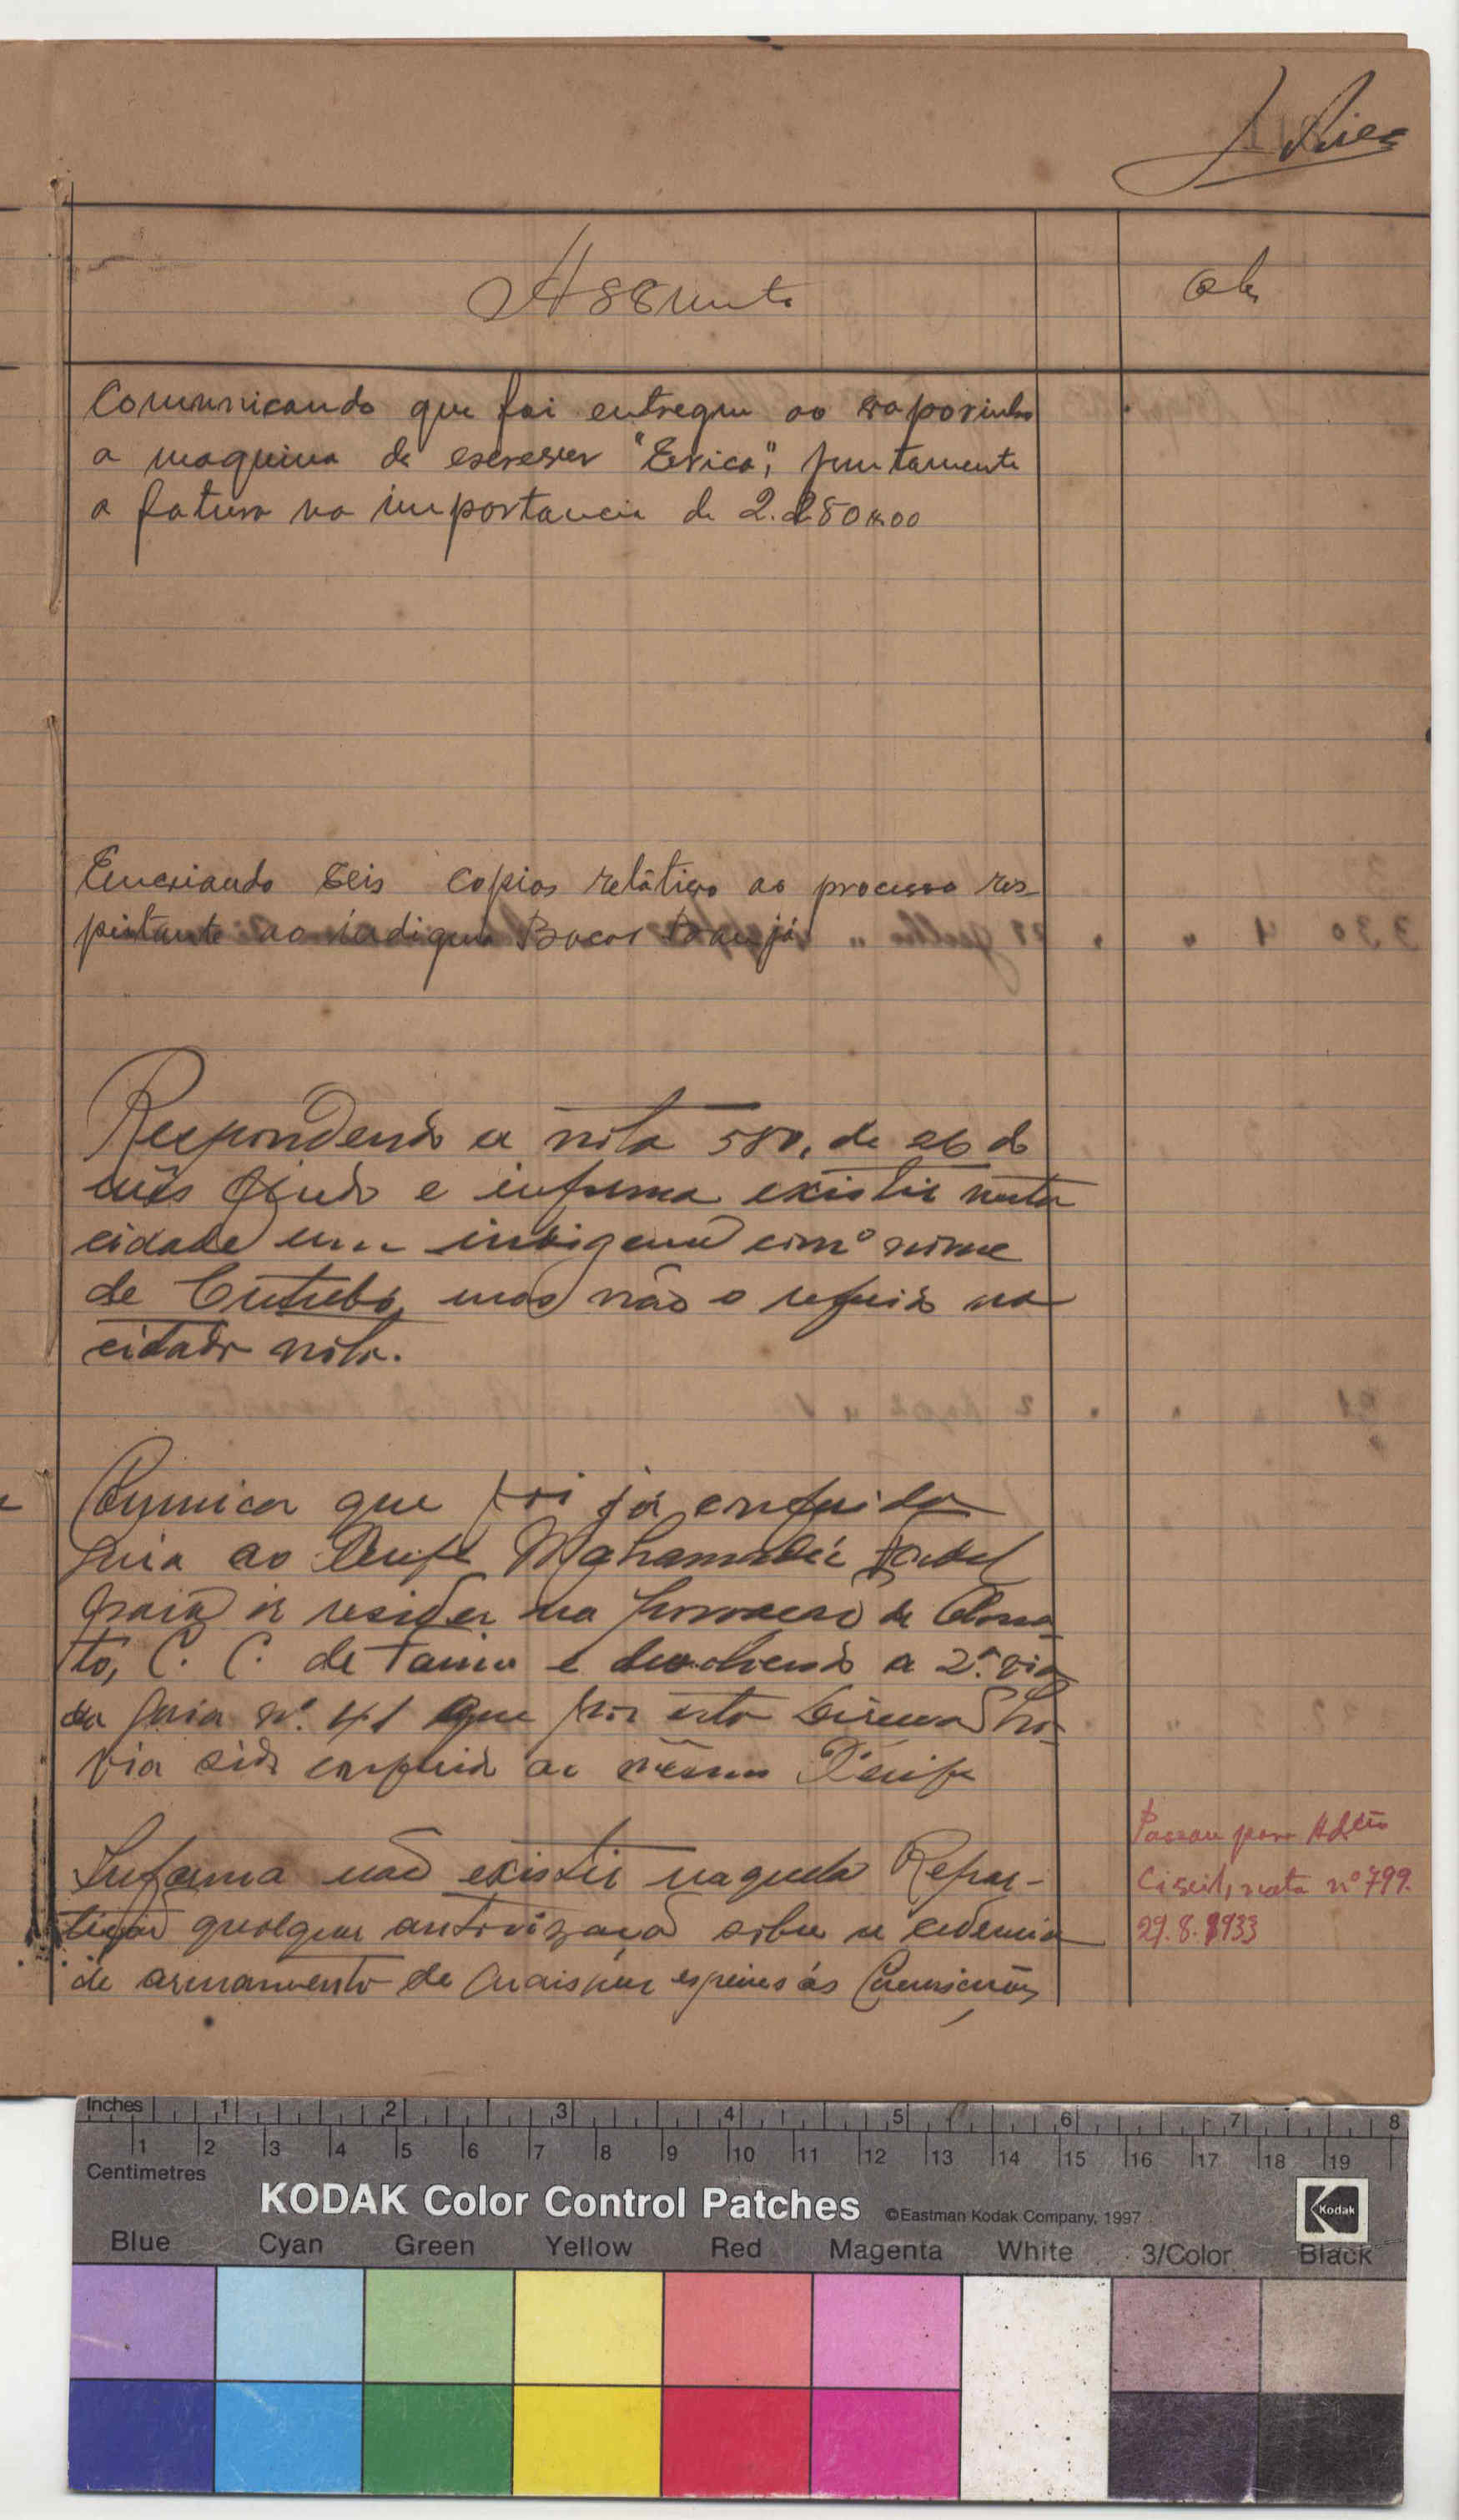 Assunto
Obs
Comunicando que foi entregue ao vaporinho
a maquina de escrever "Erica", juntamente
a fatura na importancia de 2.280$00
Enviando seis copias relativo ao processo res-
peitante ao indigena Bacar Danjá
Respondendo a nota 580, de 26 do
mês findo e informa existir nesta
cidade um indigena com o nome
de Cutubó, mas não o referido na
citada nota.
Comunica que foi já conferida
guia ao Alufa Mahamadú
para ir residir na povoação de
to, C. C. de Farim e devolvendo a 2ª via
da guia nº 41 que por esta havia
sido conferida ao mesmo
Informa não existir naquela Repar-
tição qualquer autorização sobre a cedencia
de armamento de quaisquer especies ás Comissões
Passou para Adção
Civil, nota nº 799.
29.8.1933
Inches 1 2 3 4 5 6 7 8
Centimetres 1 2 3 4 5 6 7 8 9 10 11 12 13 14 15 16 17 18 19
KODAK Color Control Patches ©Eastman Kodak Company, 1997 Kodak
Blue Cyan Green Yellow Red Magenta White 3/Color Black